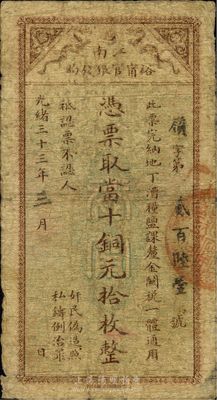 江南
裕甯官銀錢局
此票完納地丁漕糧鹽課釐金關稅一體通用
領字第貳百陸壹號
憑票取當十銅元拾枚整
祗認票不認人
光緒三十三年三月 日
奸民偽造照
私鑄例治罪